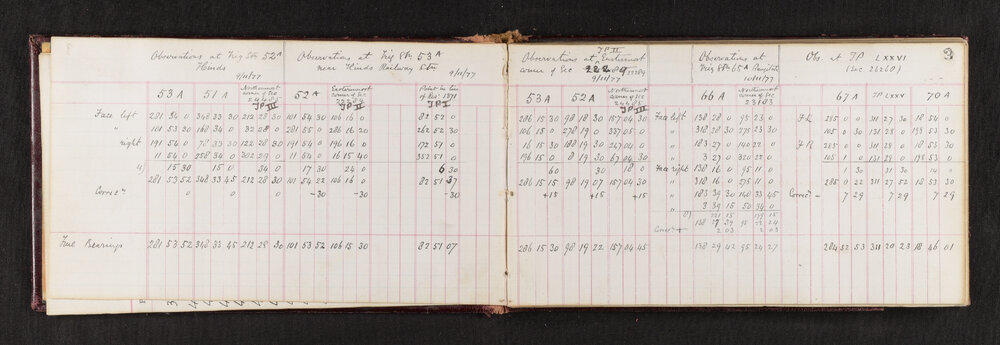 Observations at Trig Stn 52A
Hinds
9/11/77
53 A 51 A Northernmost corner of Sec 24485 TP III
Face left 281 34 0 348 33 30 212 28 30
" 101 53 30 168 34 0 32 28 0
right 191 54 0 78 33 30 122 28 30
11 54 0 258 34 0 302 29 0
4) 15 30 15 0 34 0
281 53 52 348 33 45 212 28 30
Corrcn 0 0 0
True Bearings 281 53 52 348 33 45 212 28 30
Observations at Trig Stn 53 A
near Hinds Railway Stn
9/11/77
52 A Easternmost corner of Sec TP II
TP I
101 54 30 106 16 0 82 52 0
281 55 0 286 16 20 262 52 30
191 54 0 196 16 0 172 51 0
11 54 0 16 15 40 352 51 0
17 30 24 0 6 30
101 54 22 106 16 0 82 51 37
-30 -30 -30
101 53 52 106 15 30 82 51 07
TP II
Observations at Easternmost
corner of Sec
9/11/77
53 A 52 A Northernmost corner of Sec 24485 TP III
286 15 30 98 18 30 157 04 30
106 15 0 278 19 0 337 05 0
16 15 30 188 19 30 247 04 0
196 15 0 8 19 30 67 04 30
60 30 18 0
286 15 15 98 19 07 157 04 30
+15 +15 +15
286 15 30 98 19 22 157 04 45
Observations at
Trig Stn 65A Rangitata
10/11/77
66 A Northernmost corner of Sec 23183
Face left 138 28 0 95 23 0
" 318 28 30 275 23 30
" 183 27 0 140 22 0
" 3 27 0 320 22 0
Face right 138 16 0 95 11 0
" 318 16 0 275 11 0
" 183 39 30 140 33 45
" 3 39 15 50 34 0
8)
138 27 39 95 22 24
Corrcn + 2 03 2 03
138 29 42 95 24 27
3
Obs. at TP LXXVI
(Sec 26260)
67 A TP LXXV 70 A
F L 285 0 0 311 27 30 18 54 0
105 0 30 131 28 0 198 53 30
F R 285 0 0 311 28 0 18 53 30
105 1 0 131 28 0 198 53 0
1 30 31 30 14 0
285 0 22 311 27 52 18 53 30
Corrcn - 7 29 7 29 7 29
284 52 53 311 20 23 18 46 01